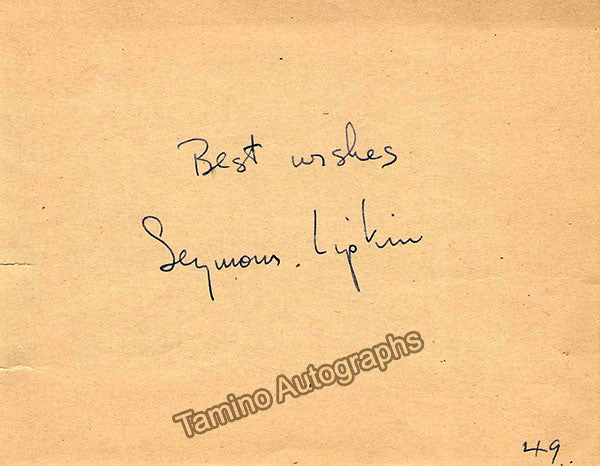 Best wishes
Seymour Lipkin
Tamino Autographs
49.